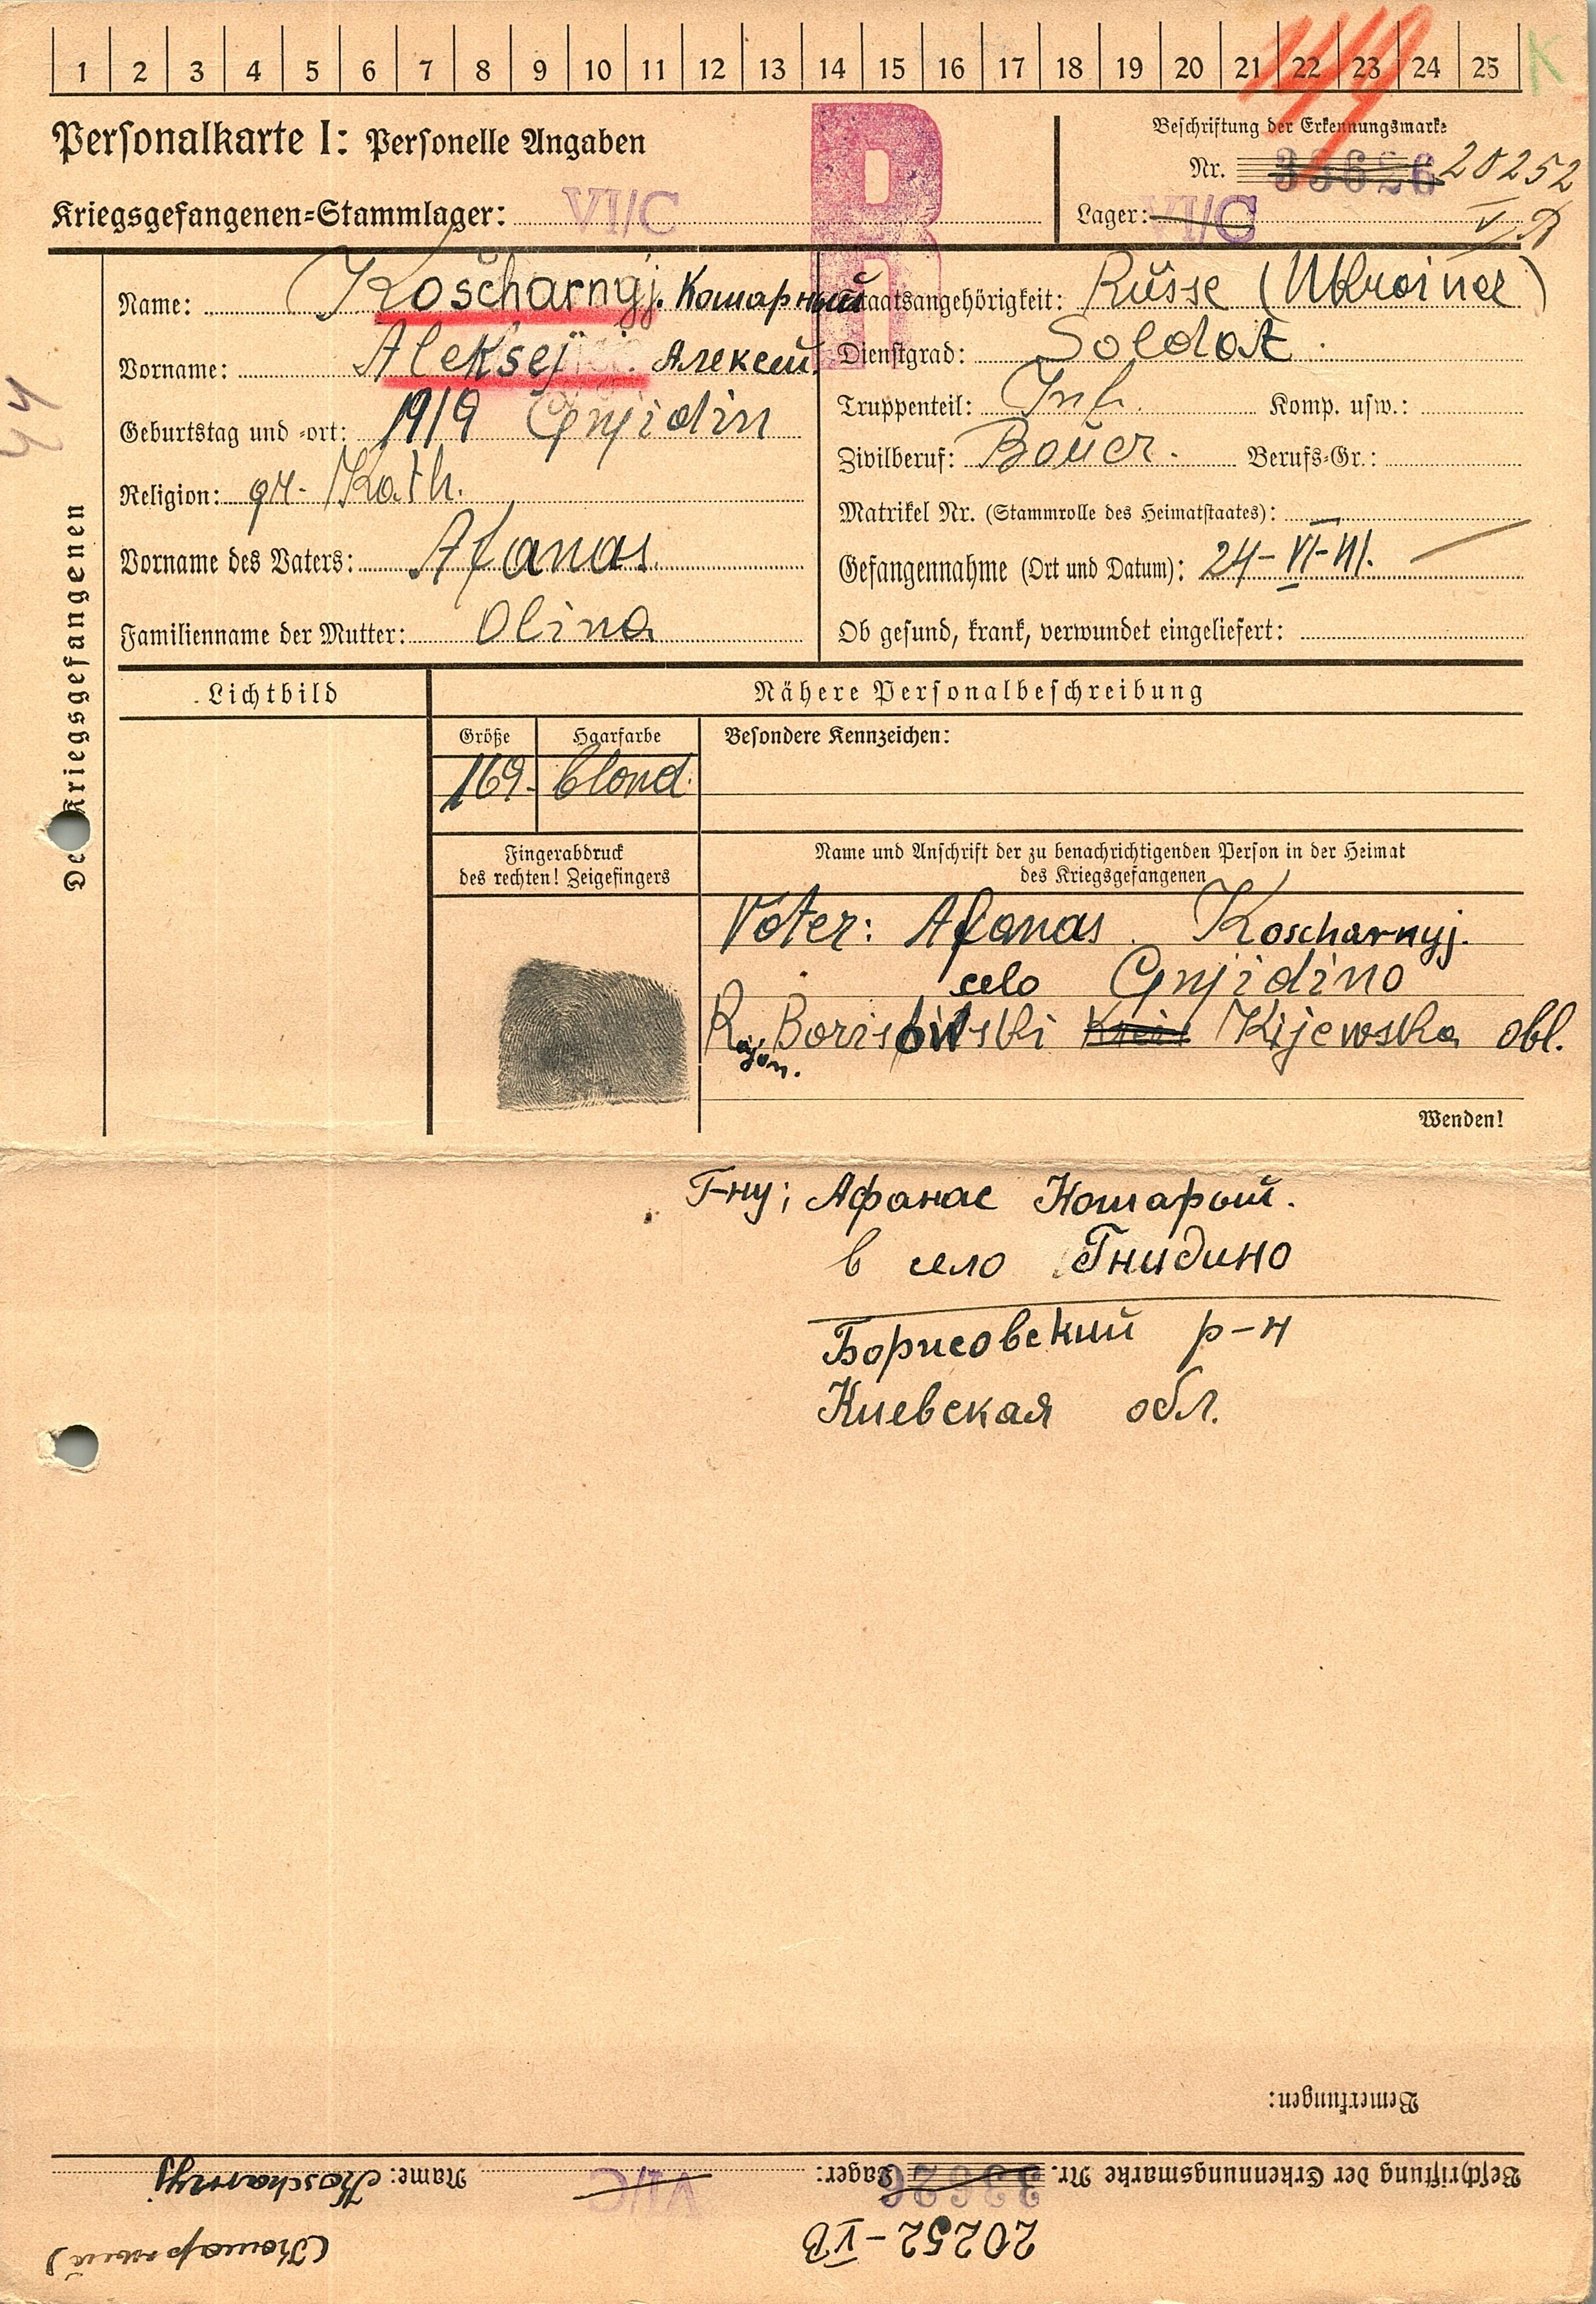 1 2 3 4 5 6 7 8 9 10 11 12 13 14 15 16 17 18 19 20 21 22 23 24 25 K
Personalkarte I: Personelle Angaben
Beschriftung der Erkennungsmarke
Nr. 33626 20252
Kriegsgefangenen-Stammlager: VI/C
Lager: VI/C V B
R
Name: Koscharnyj. Кошарный
Staatsangehörigkeit: Russe (Ukrainer)
Vorname: Aleksej. Алексей
Dienstgrad: Soldat.
Geburtstag und -ort: 1919 Gnjidin
Truppenteil: Inf. Komp. usw.:
Religion: gr. Kath.
Zivilberuf: Bauer. Berufs-Gr.:
Matrikel Nr. (Stammrolle des Heimatstaates): –
Vorname des Vaters: Afanas.
Gefangennahme (Ort und Datum): 24-VI-41. —
Familienname der Mutter: Olina
Ob gesund, krank, verwundet eingeliefert:
Des Kriegsgefangenen
Lichtbild
Nähere Personalbeschreibung
Größe Haarfarbe Besondere Kennzeichen:
169. blond.
Fingerabdruck
des rechten! Zeigefingers
Name und Anschrift der zu benachrichtigenden Person in der Heimat
des Kriegsgefangenen
Vater: Afanas Koscharnyj.
selo Gnjidino
Rajon. Borisowski Kreis Kijewska obl.
Wenden!
Г-ну; Афанас Кошарый.
в село Гнидино
Борисовский р-н
Киевская обл.
Bemerkungen:
Beschriftung der Erkennungsmarke Nr. 33626 Lager: VI/C Name: Koscharnyj
20252-VB (Кошарный)